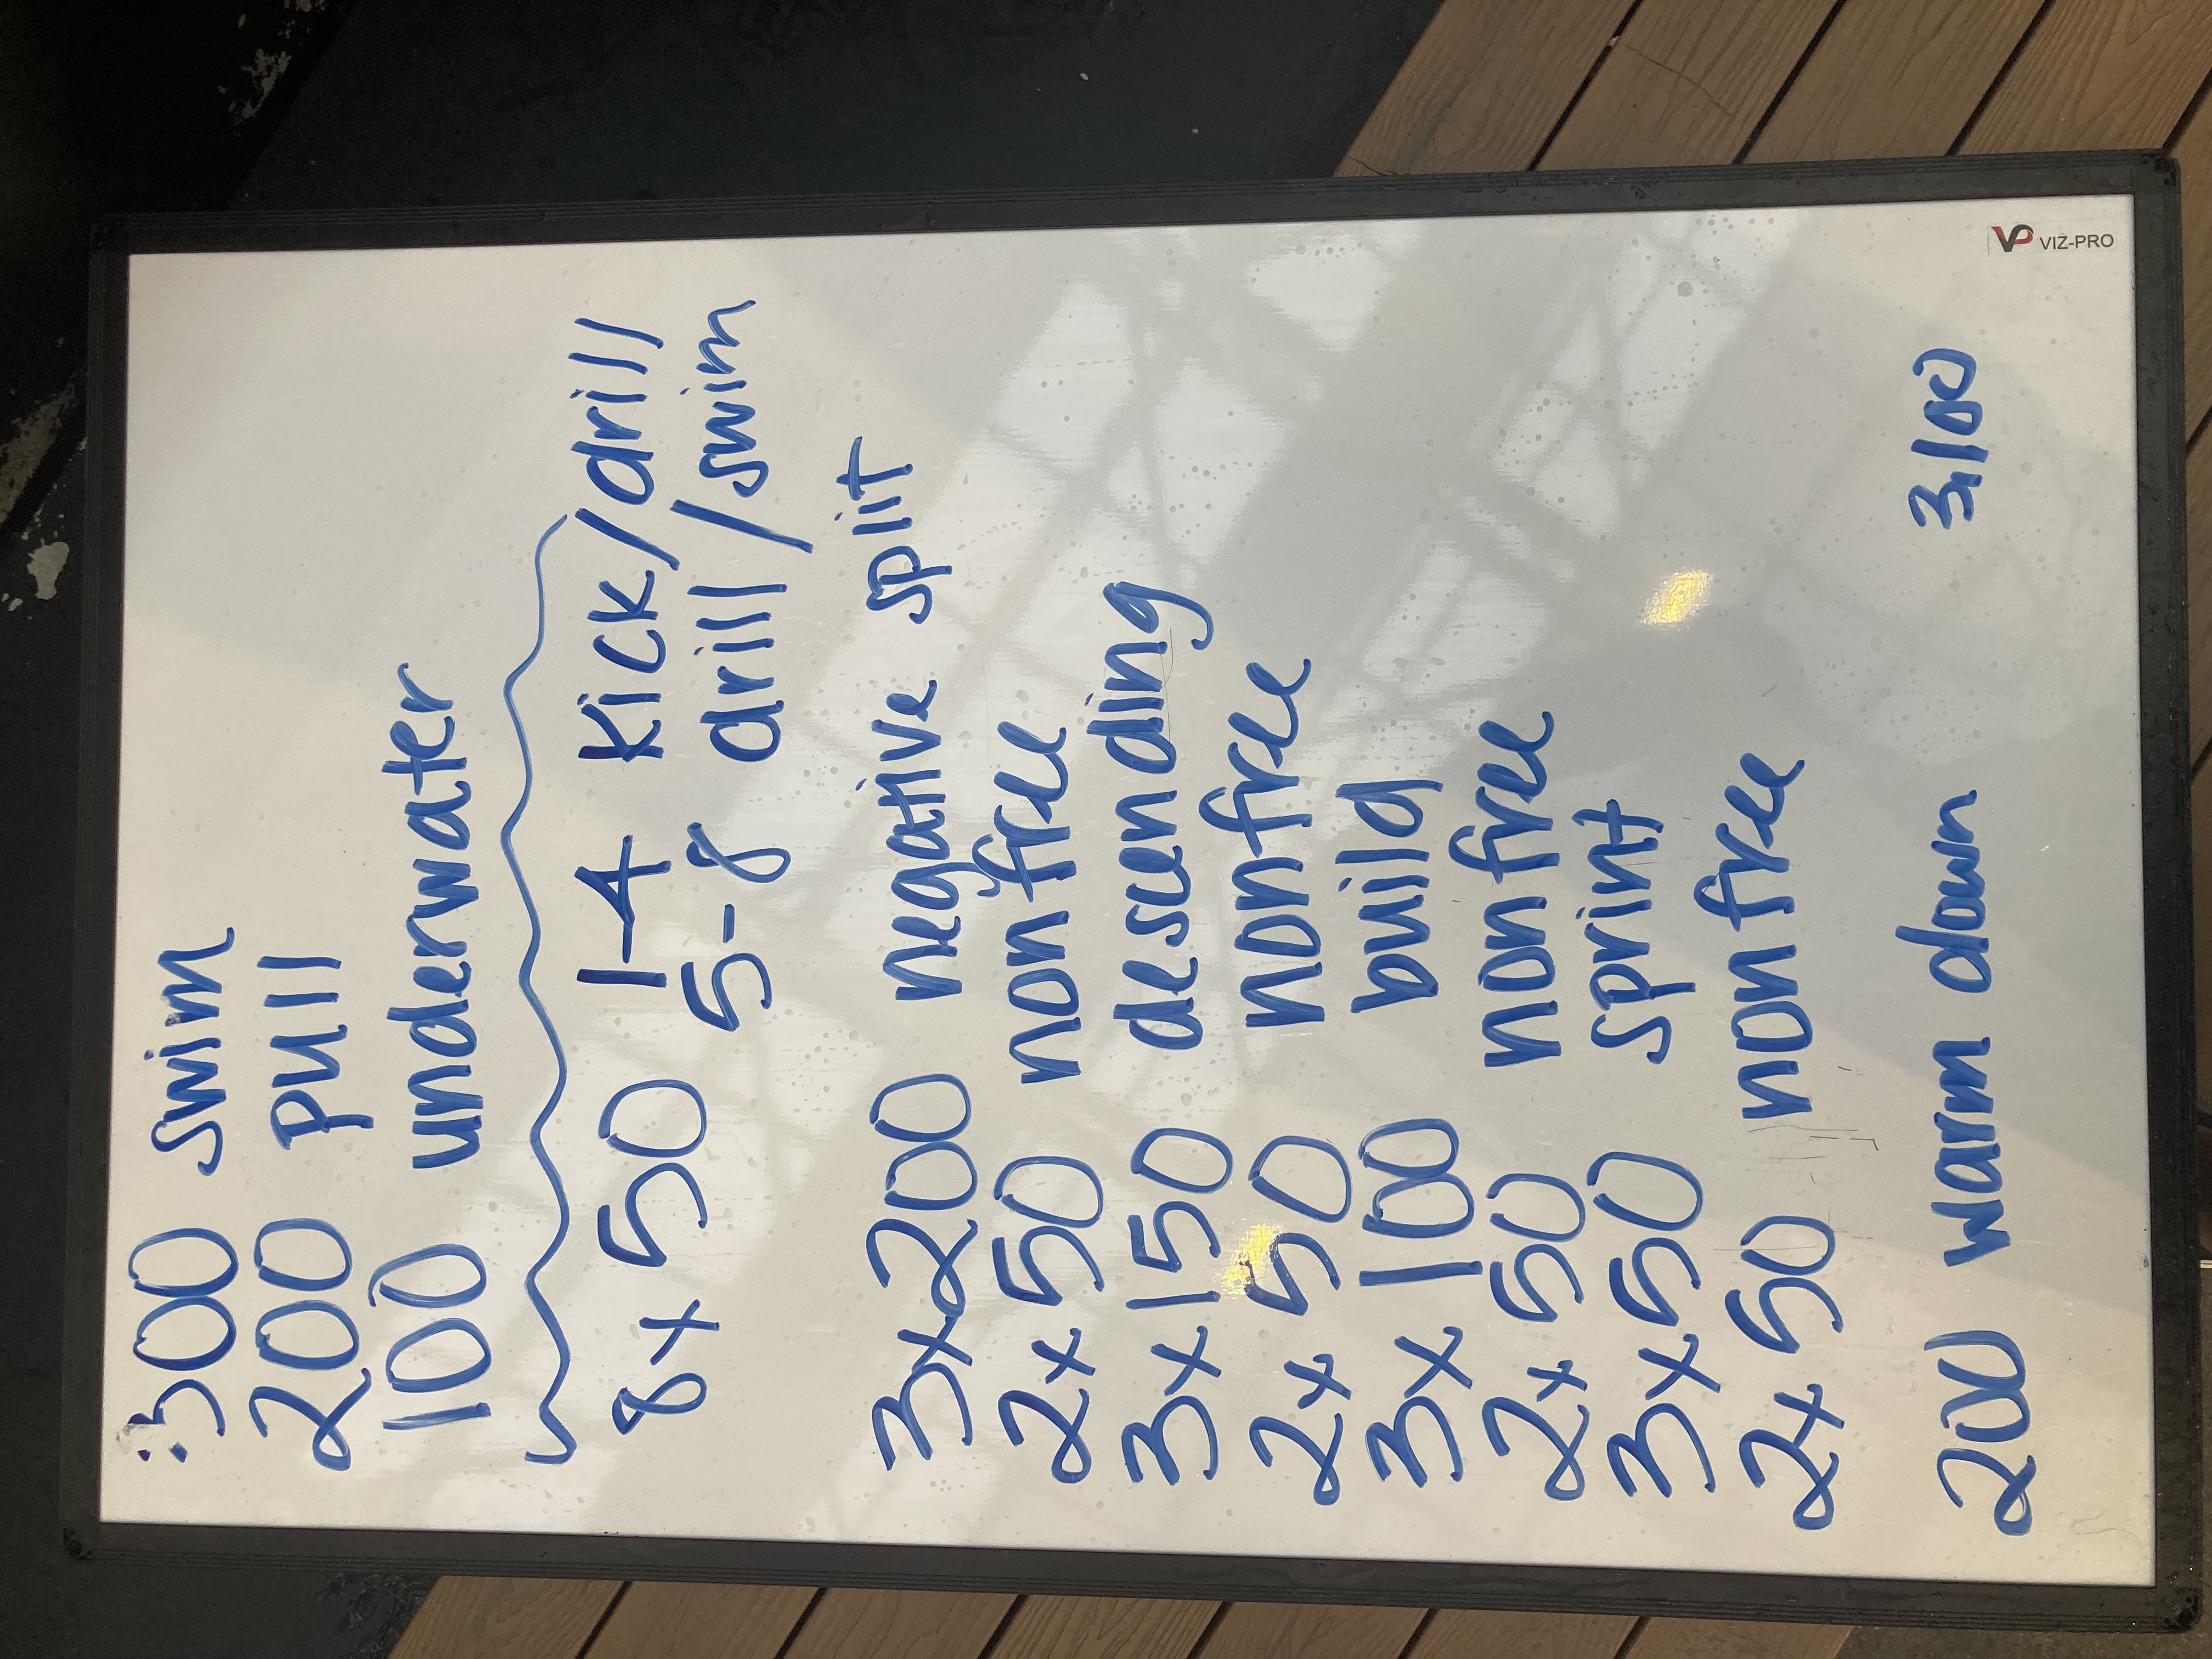 300 swim
200 pull
100 underwater
8x50 1-4 kick/drill
5-8 drill/swim
3x200 negative split
2x50 non free
3x150 descending
2x50 non free
3x100 build
2x50 non free
3x50 sprint
2x50 non free
200 warm down
3,100
VP VIZ-PRO